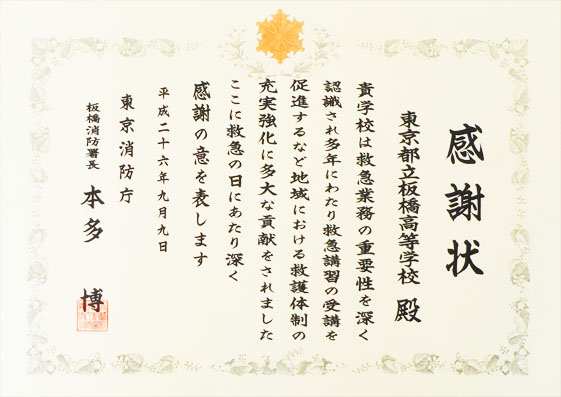 感謝状
東京都立板橋高等学校 殿
貴学校は救急業務の重要性を深く
認識され多年にわたり救急講習の受講を
促進するなど地域における救護体制の
充実強化に多大な貢献をされました
ここに救急の日にあたり深く
感謝の意を表します
平成二十六年九月九日
東京消防庁
板橋消防署長 本多 博